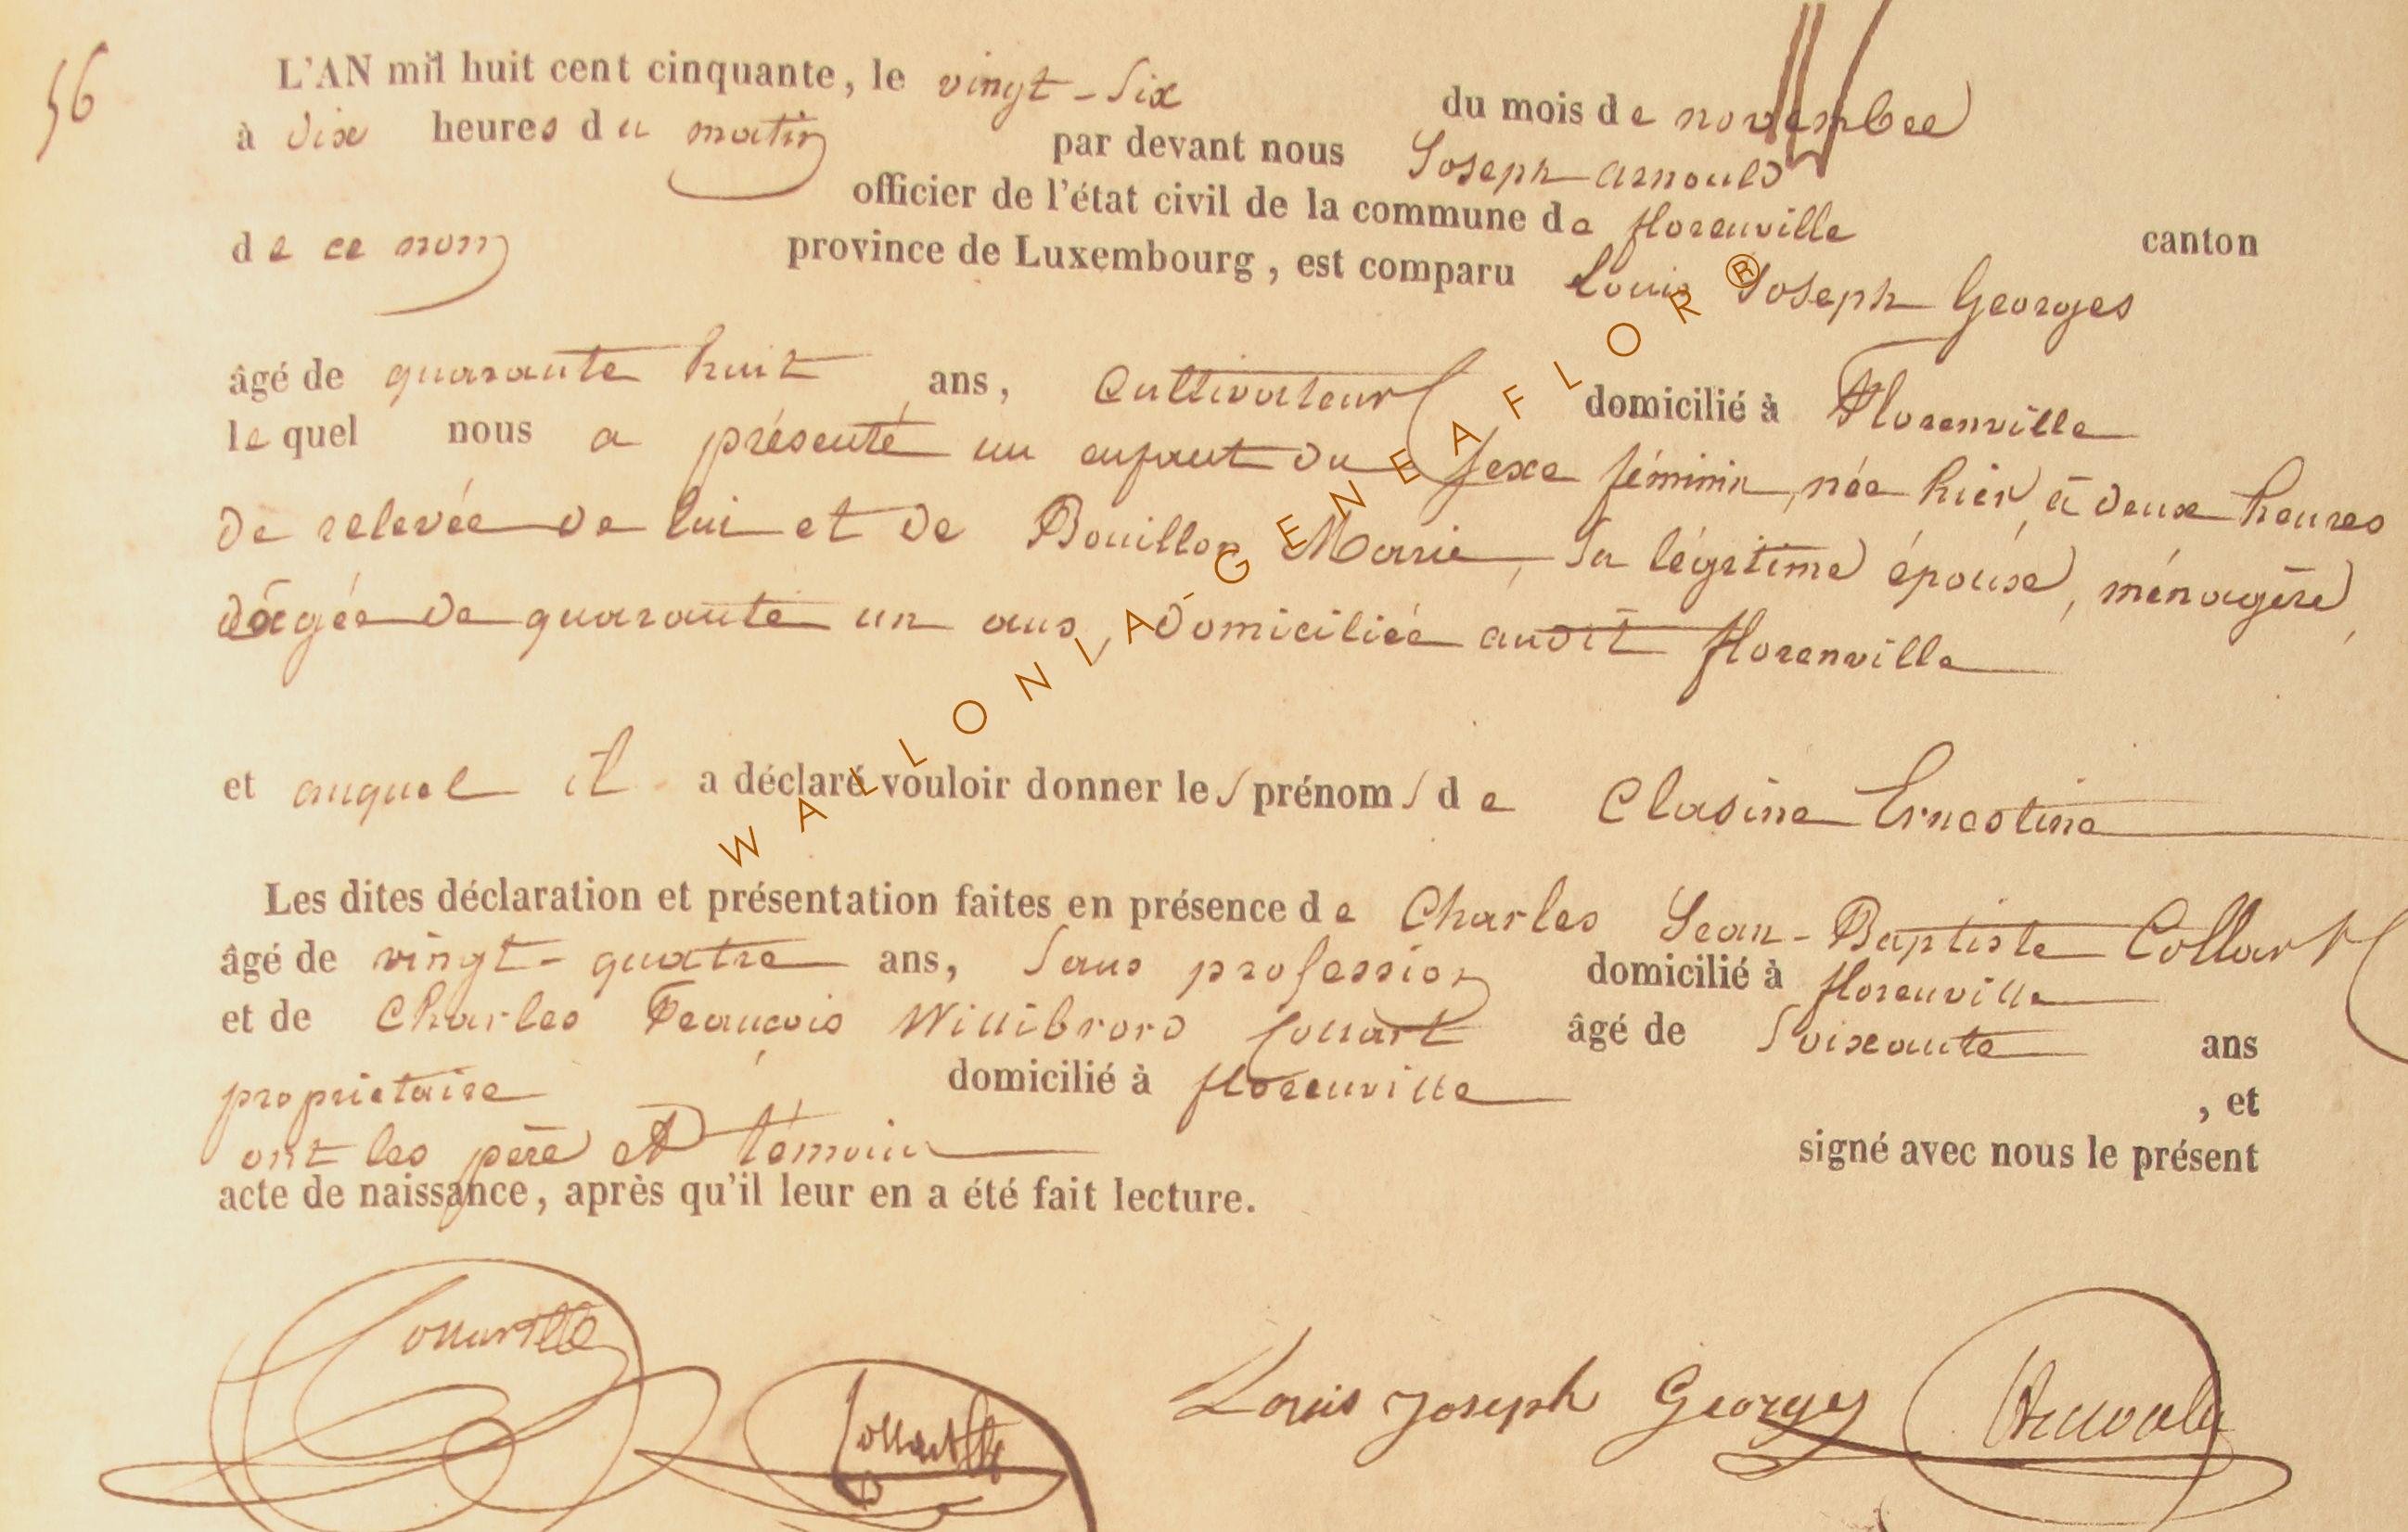 56
L'AN mil huit cent cinquante, le vingt-six du mois de novembre
à dix heures du matin par devant nous Joseph arnould
officier de l'état civil de la commune de florenville canton
de ce nom province de Luxembourg, est comparu Louis Joseph Georges
âgé de quarante huit ans, Cultivateur domicilié à Florenville
lequel nous a présenté un enfant du sexe féminin, née hier à deux heures
de relevée de lui et de Bouillon Marie, sa légitime épouse, ménagère,
âgée de quarante un ans, domiciliée audit florenville
et auquel il a déclaré vouloir donner les prénoms de Clasine Ernestine
Les dites déclaration et présentation faites en présence de Charles Jean-Baptiste Collart
âgé de vingt-quatre ans, sans profession domicilié à florenville
et de Charles François Willibrord Collart âgé de soixante ans
propriétaire domicilié à florenville , et
ont les père et témoins signé avec nous le présent
acte de naissance, après qu'il leur en a été fait lecture.
Collart
Collart
Louis Joseph Georges
WALLONIA-GENEAFLOR®